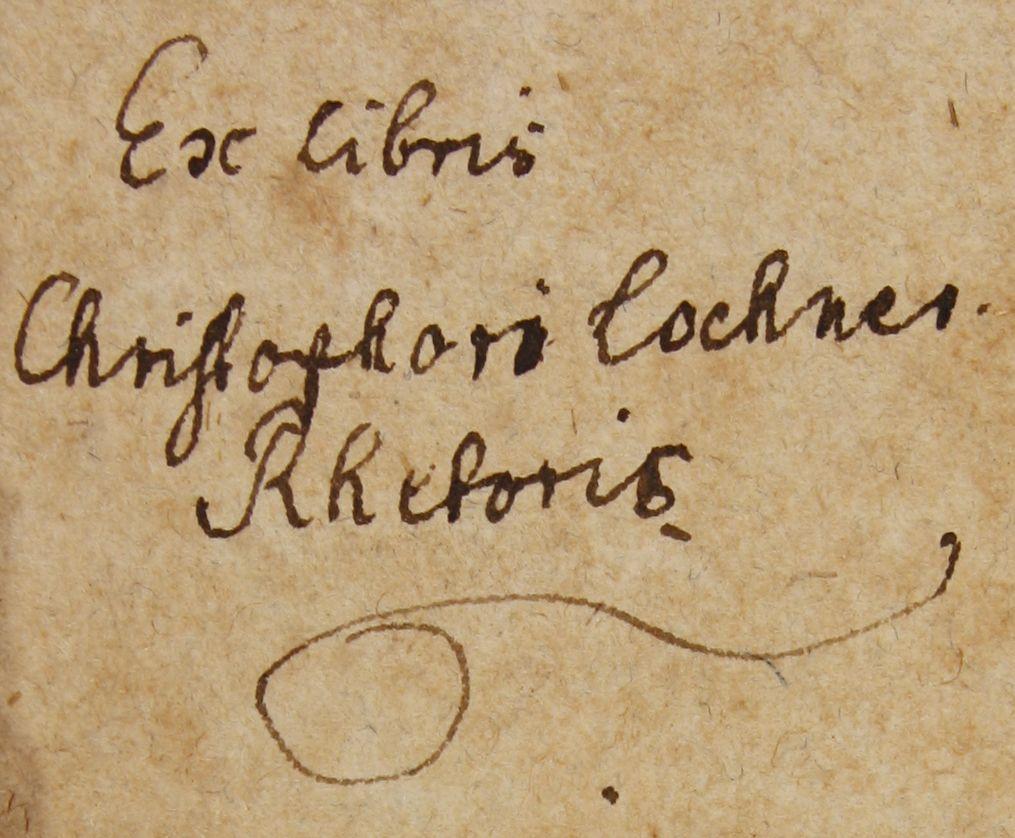 Ex Libris
Christophori Lochner.
Rhetoris